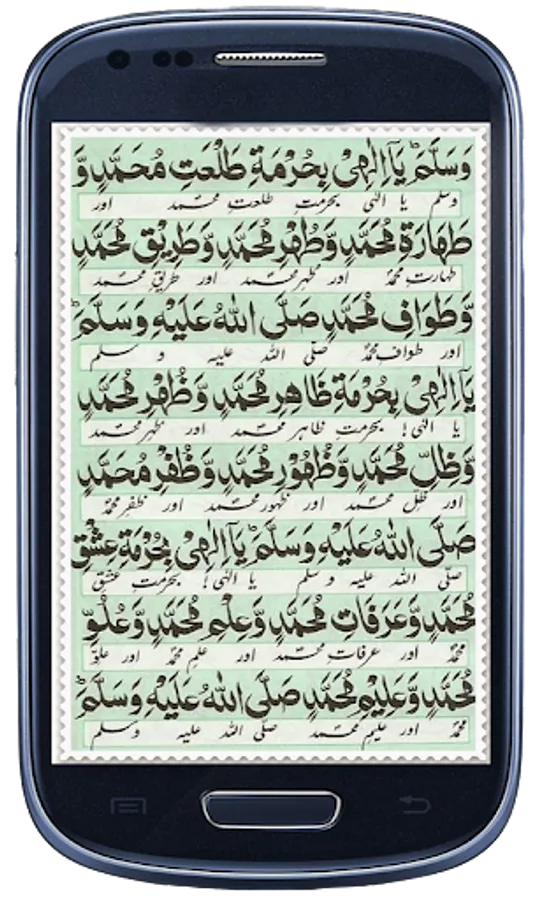 وَسَلَّمَ يَآ اِلٰهِیْ بِحُرْمَةِ طَلْعَتِ مُحَمَّدٍ وَّ
وسلم یا الٰہی بحرمتِ طلعتِ محمد اور
طَهَارَةِ مُحَمَّدٍ وَّطُهْرِ مُحَمَّدٍ وَّطَرِيْقِ مُحَمَّدٍ
طہارتِ محمدؐ اور طہرِ محمد اور طریقِ محمد
وَّطَوَافِ مُحَمَّدٍ صَلَّى اللهُ عَلَيْهِ وَسَلَّمَ ط
اور طوافِ محمدؐ صلی اللہ علیہ و سلم
يَآ اِلٰهِیْ بِحُرْمَةِ ظَاهِرِ مُحَمَّدٍ وَّظُهْرِ مُحَمَّدٍ
یا الٰہی! بحرمتِ ظاہرِ محمد اور ظہرِ محمد
وَّظِلِّ مُحَمَّدٍ وَّظُهُوْرِ مُحَمَّدٍ وَّظُفْرِ مُحَمَّدٍ
اور ظلِّ محمد اور ظہورِ محمد اور ظفرِ محمدؐ
صَلَّى اللهُ عَلَيْهِ وَسَلَّمَ ط يَآ اِلٰهِیْ بِحُرْمَةِ عِشْقِ
صلی اللہ علیہ و سلم یا الٰہی! بحرمتِ عشقِ
مُحَمَّدٍ وَّعَرَفَاتِ مُحَمَّدٍ وَّعِلْمِ مُحَمَّدٍ وَّعُلُوِّ
محمدؐ اور عرفاتِ محمد اور علمِ محمدؐ اور علوِّ
مُحَمَّدٍ وَّعَلِيْمِ مُحَمَّدٍ صَلَّى اللهُ عَلَيْهِ وَسَلَّمَ ط
محمدؐ اور علیمِ محمد صلی اللہ علیہ وسلم